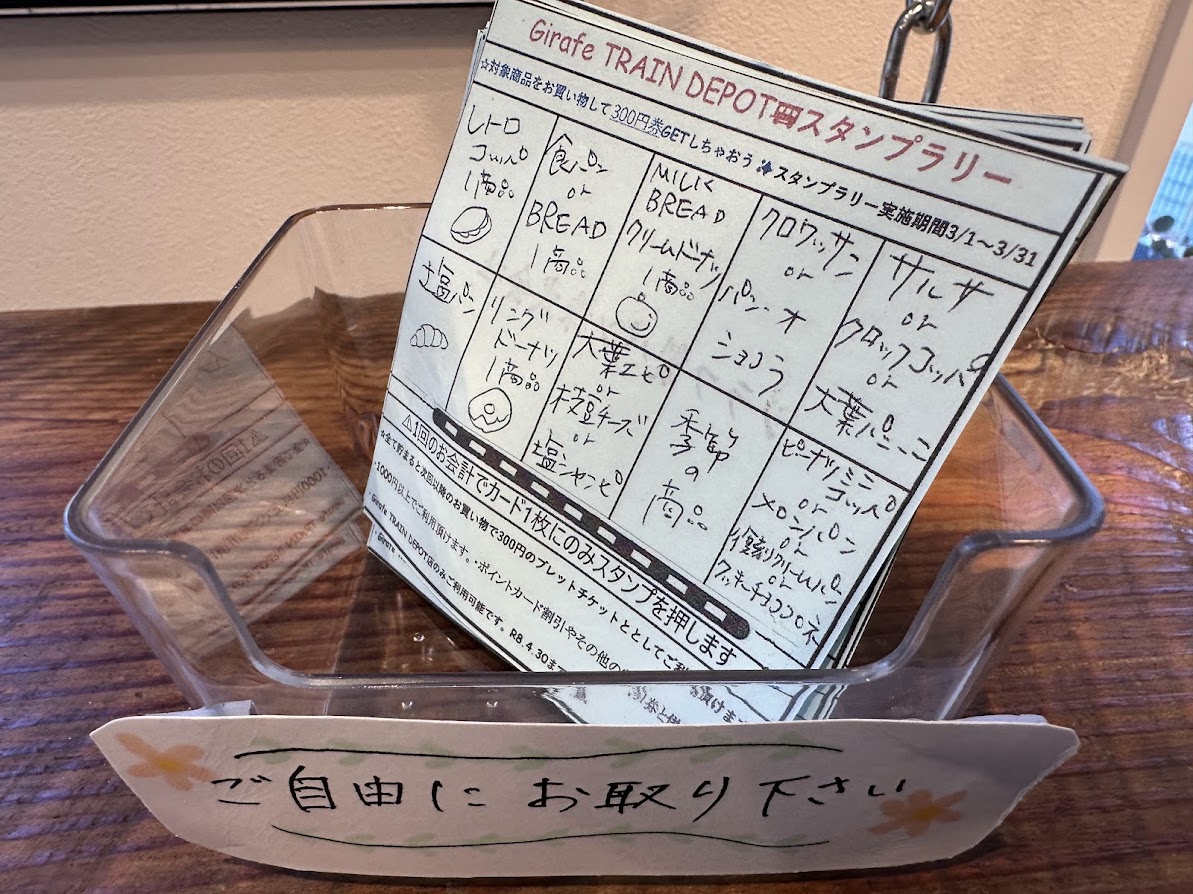 Girafe TRAIN DEPOT スタンプラリー
☆対象商品をお買い物して300円券GETしちゃおう スタンプラリー実施期間3/1～3/31
レトロ
コッパ
1商品
食パン
or
BREAD
1商品
MILK
BREAD
クリームドーナツ
1商品
クロワッサン
or
パン・オ
ショコラ
サルサ
or
クロックコッパ
or
大葉パニーニ
塩パン
リング
ドーナツ
1商品
大葉エピ
or
枝豆チーズ
or
塩シャンピ
季節
の
商品
ピーナツミニ
コッペ
or
メロンパン
or
復刻クリームパン
or
クッキーチョココロネ
⚠1回のお会計でカード1枚にのみスタンプを押します
☆全て貯まると次回以降のお買い物で300円のブレットチケットととしてご利
・1000円以上でご利用頂けます。・ポイントカード割引やその他の
・Girafe TRAIN DEPOT店のみご利用可能です。R8.4.30まで
・Girafe
ご自由にお取り下さい